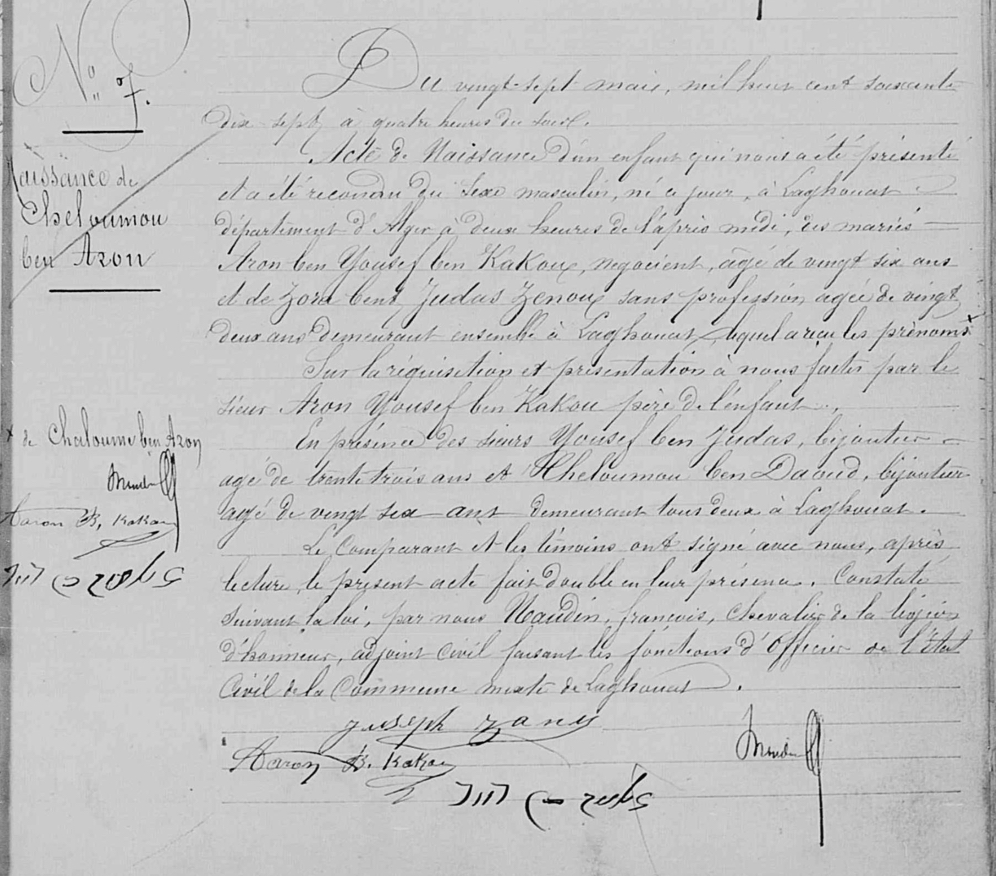 N° 7.
Naissance de
Cheloumou
ben Aron
Du vingt sept mais, mil huit cent soixante
dix sept, à quatre heures du soir.
Acte de Naissance d'un enfant qui nous a été présenté
et a été reconnu du sexe masculin, né ce jour, à Laghouat
département d'Alger à deux heures de l'après midi, des mariés
Aron ben Yousef ben Kakou, négocient, âgé de vingt six ans
et de Zora bent Judas Zenou sans profession agée de vingt
deux ans demeurant ensemble à Laghouat, lequel a reçu les prénoms x
Sur la réquisition et présentation à nous faites par le
sieur Aron Yousef ben Kakou père de l'enfant.
En présence des sieurs Yousef ben Judas, bijoutier
agé de trente trois ans et Cheloumou ben Daoud, bijoutier
agé de vingt six ans demeurant tous deux à Laghouat.
Le Comparant et les témoins ont signé avec nous, après
lecture, le présent acte fait double en leur présence. Constaté
suivant la loi, par nous Naudin, françois, chevalier de la légion
d'honneur, adjoint civil faisant les fonctions d'Officier de l'État
Civil de la Commune mixte de Laghouat.
x de Cheloume ben Aron
Aaron B. Kakou
Joseph
Aaron B. Kakou